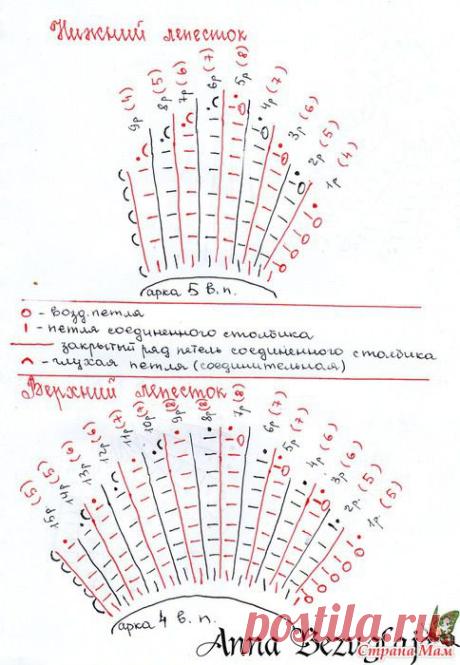 Нижний лепесток
9р (4)
8р (5)
7р (6)
6р (7)
5р (8)
4р (7)
3р (6)
2р (5)
1р (4)
арка 5 в.п.
о - возд. петля
ı - петля соединенного столбика
— закрытый ряд петель соединенного столбика
⌒ - глухая петля (соединительная)
Верхний лепесток
15р (5)
14р (5)
13р (6)
12р (6)
11р (7)
10р (7)
9р (8)
8р (8)
7р (8)
6р (7)
5р (7)
4р (6)
3р (6)
2р. (5)
1р (5)
арка 4 в. п.
postila.ru
Anna
Страна Мам